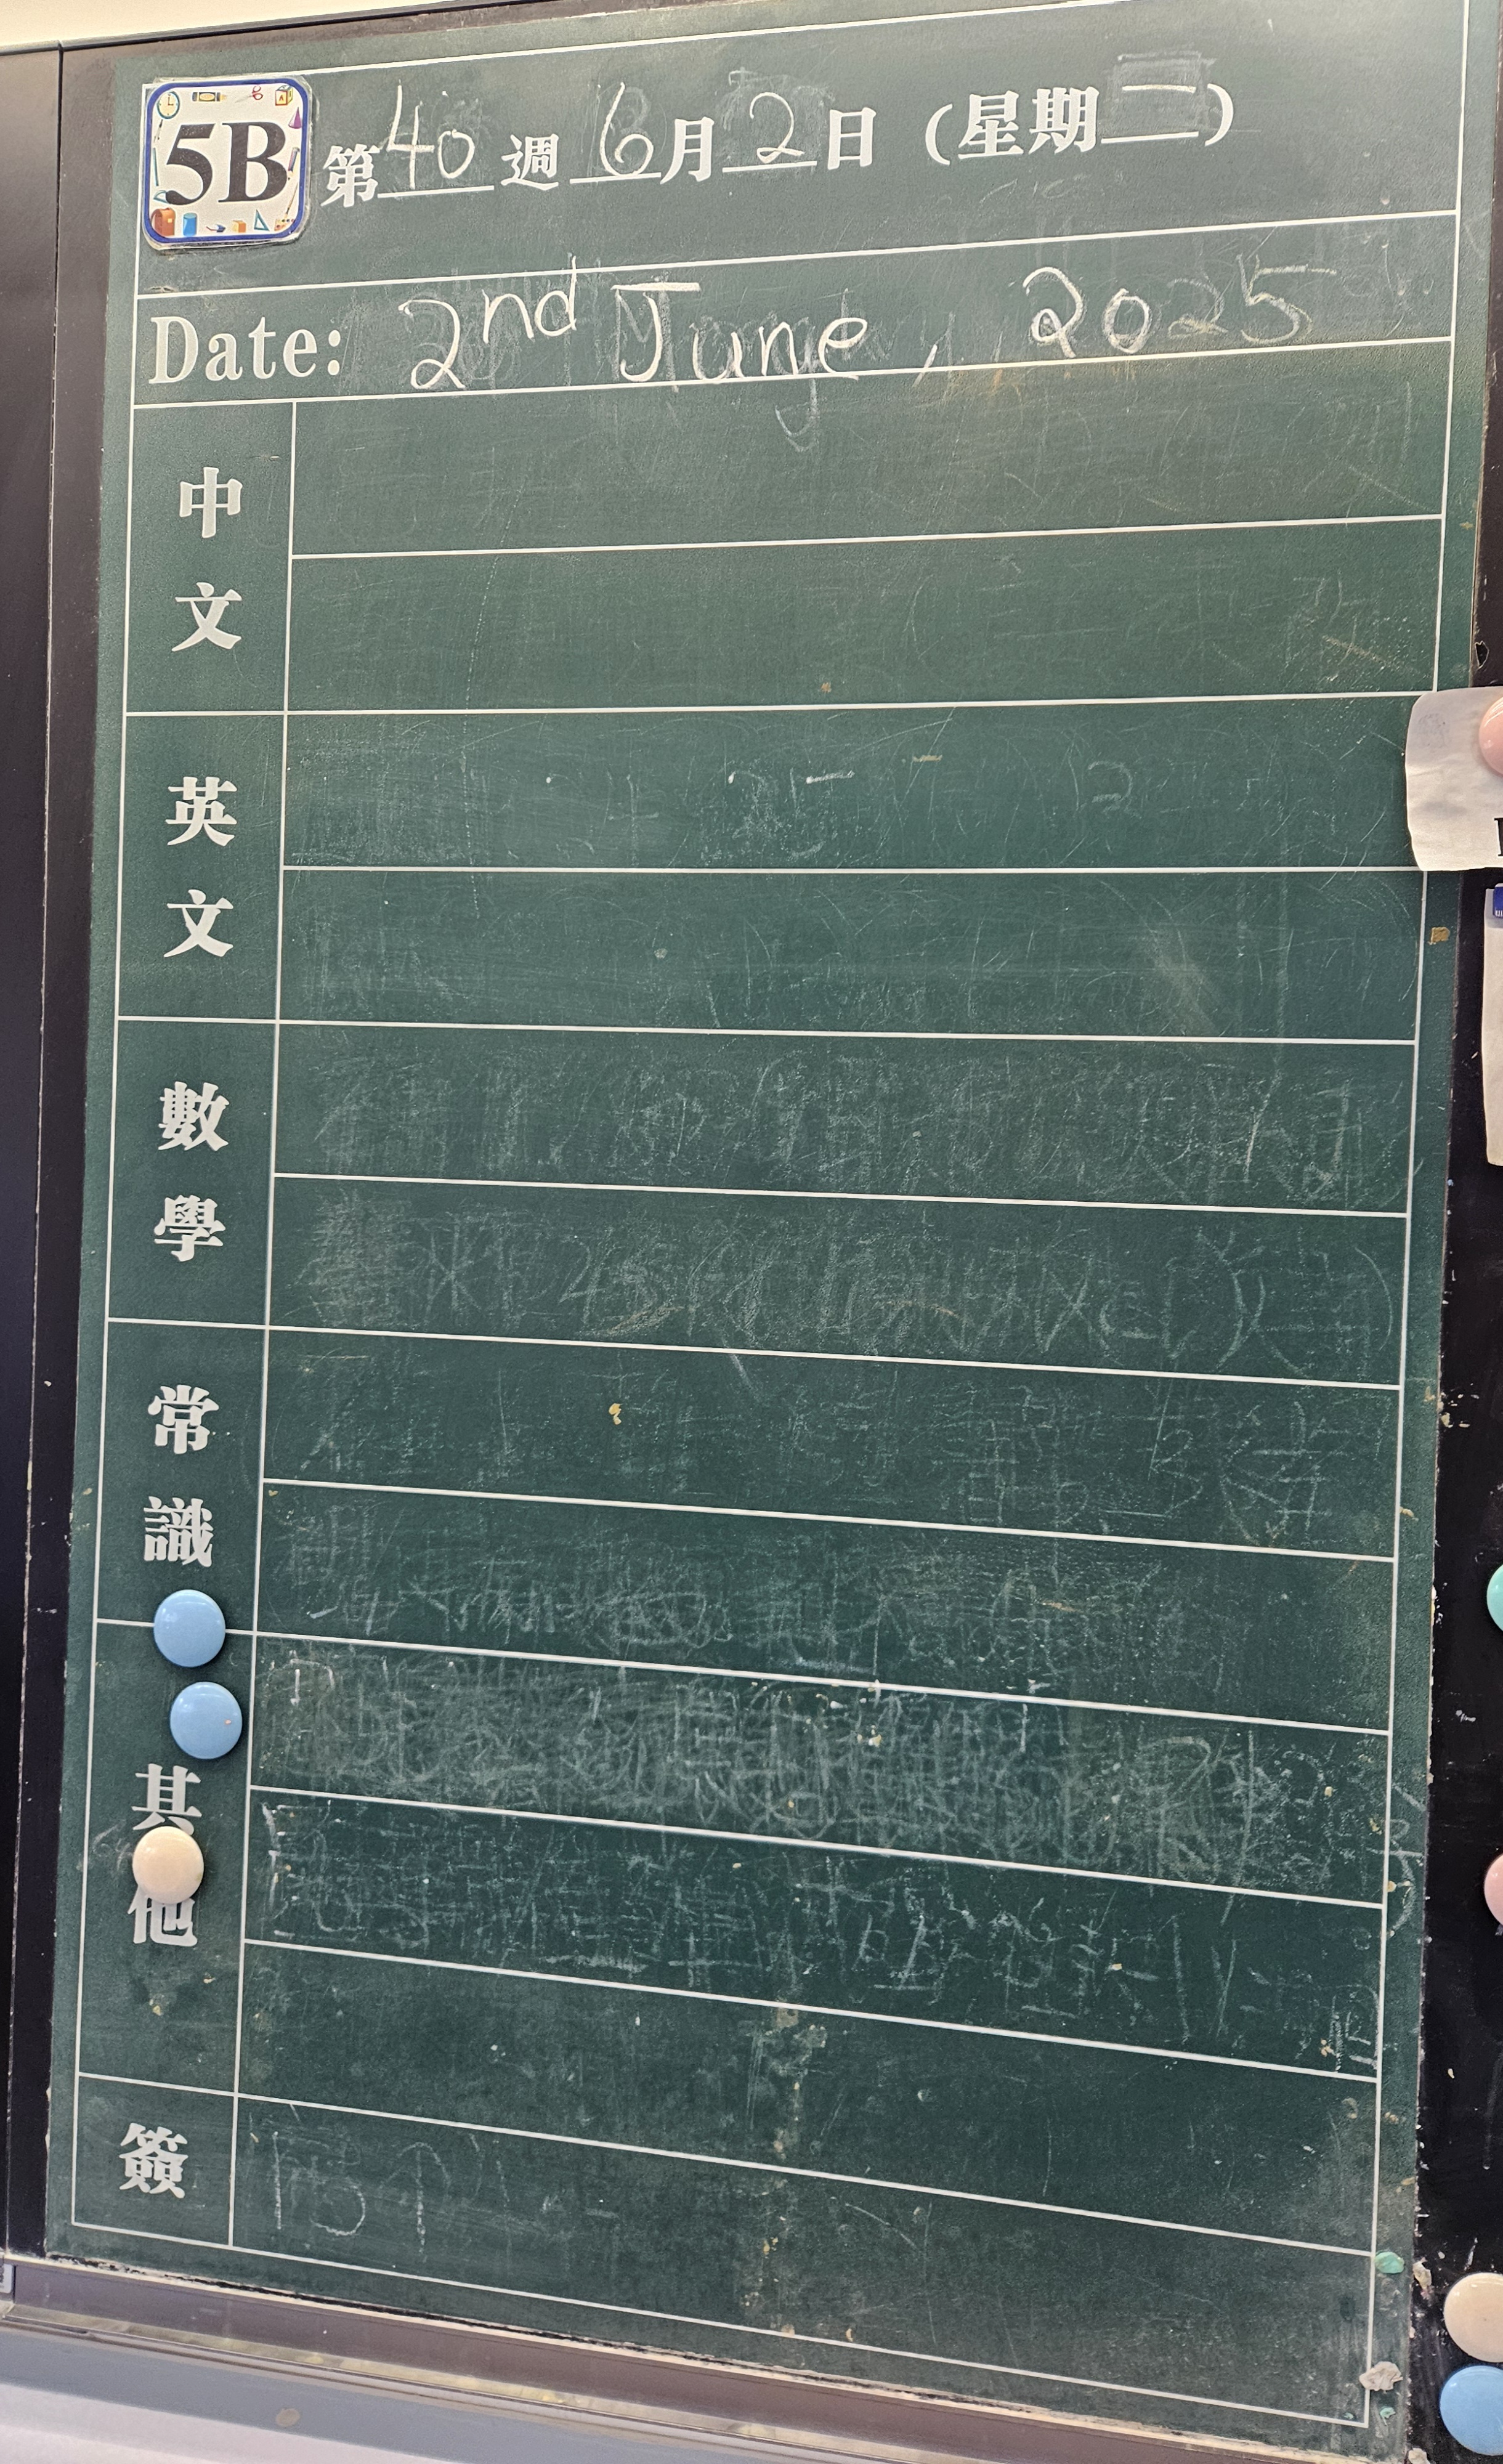 5B 第40週 6月2日 (星期一)
Date: 2nd June, 2025
中文
英文
數學
常識
其他
簽